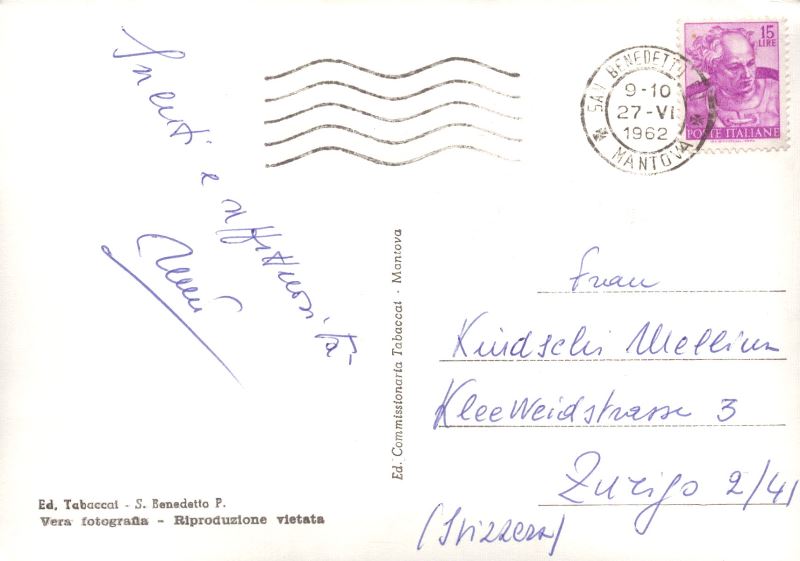 15
LIRE
POSTE ITALIANE
SAN BENEDETTO
9-10
27-VI
1962
MANTOVA
e affettuosità
Ed. Commissionaria Tabaccai - Mantova
Frau
Kindschi Mellina
Kleeweidstrasse 3
Zurigo 2/41
(Svizzera)
Ed. Tabaccai - S. Benedetto P.
Vera fotografia - Riproduzione vietata